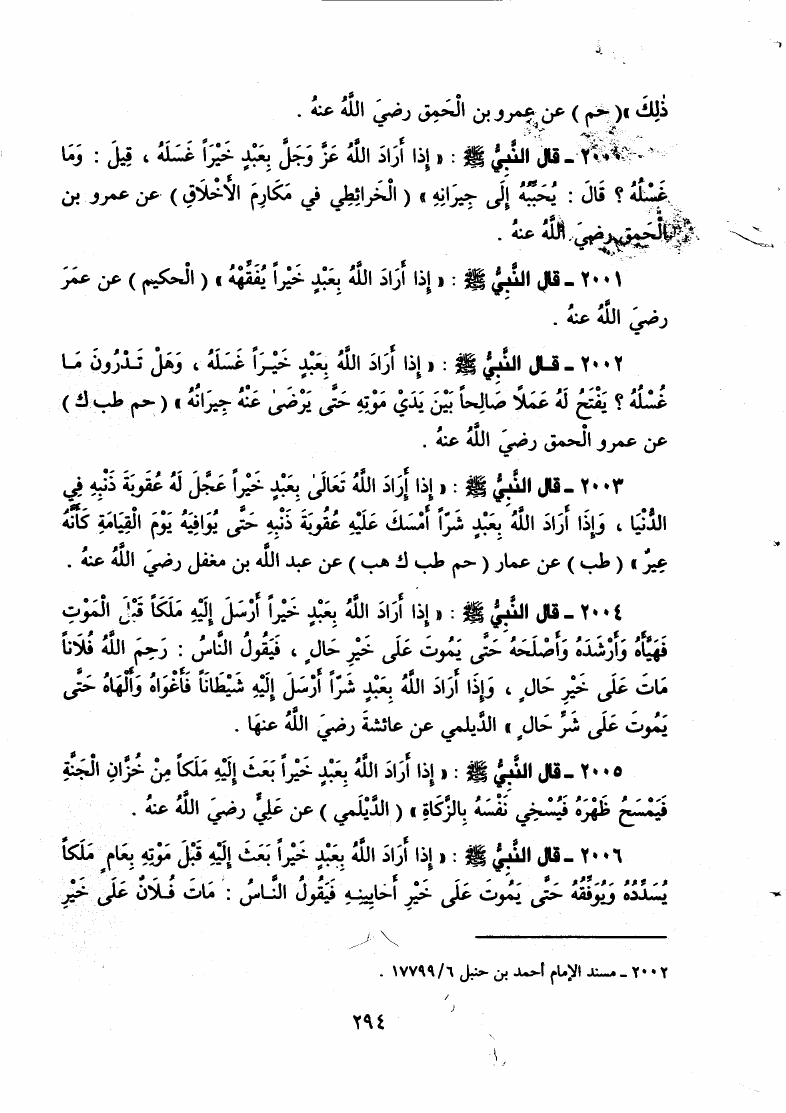 ذٰلِكَ »( حم ) عن عمرو بن الْحَمِقِ رضيَ اللَّهُ عنهُ .
٢٠٠٠ ـ قال النَّبِيُّ ﷺ : « إِذا أَرَادَ اللَّهُ عَزَّ وَجَلَّ بِعَبْدٍ خَيْراً غَسَلَهُ ، قِيلَ : وَمَا
غَسْلُهُ ؟ قَالَ : يُحَبِّبُهُ إِلَى جِيرَانِهِ » ( الْخَرائِطِي في مَكَارِمِ الأَخْلَاقِ ) عن عمرو بن
الْحَمِقِ رضيَ اللَّهُ عنهُ .
٢٠٠١ ـ قال النَّبِيُّ ﷺ : « إِذا أَرَادَ اللَّهُ بِعَبْدٍ خَيْراً يُفَقِّهْهُ » ( الْحكيم ) عن عمَرَ
رضيَ اللَّهُ عنهُ .
٢٠٠٢ ـ قـال النَّبِيُّ ﷺ : « إِذا أَرَادَ اللَّهُ بِعَبْدٍ خَيْـراً غَسَلَهُ ، وَهَلْ تَـدْرُونَ مَـا
غُسْلُهُ ؟ يَفْتَحُ لَهُ عَمَلًا صَالِحاً بَيْنَ يَدَيْ مَوْتِهِ حَتَّى يَرْضىٰ عَنْهُ جِيرَانُهُ » ( حم طب ك )
عن عمرو الْحمق رضيَ اللَّهُ عنهُ .
٢٠٠٣ ـ قال النَّبِيُّ ﷺ : « إِذا أَرَادَ اللَّهُ تَعَالَى بِعَبْدٍ خَيْراً عَجَّلَ لَهُ عُقُوبَةَ ذَنْبِهِ فِي
الدُّنْيَا ، وَإِذَا أَرَادَ اللَّهُ بِعَبْدٍ شَرّاً أَمْسَكَ عَلَيْهِ عُقُوبَةَ ذَنْبِهِ حَتَّى يُوَافِيَهُ يَوْمَ الْقِيَامَةِ كَأَنَّهُ
عِيرٌ » ( طب ) عن عمار ( حم طب ك هب ) عن عبد اللَّه بن مغفل رضيَ اللَّهُ عنهُ .
٢٠٠٤ ـ قال النَّبِيُّ ﷺ : « إِذا أَرَادَ اللَّهُ بِعَبْدٍ خَيْراً أَرْسَلَ إِلَيْهِ مَلَكاً قَبْلَ الْمَوْتِ
فَهَيَّأَهُ وَأَرْشَدَهُ وَأَصْلَحَهُ حَتَّى يَمُوتَ عَلَى خَيْرِ حَالٍ ، فَيَقُولُ النَّاسُ : رَحِمَ اللَّهُ فُلَاناً
مَاتَ عَلَى خَيْرِ حَالٍ ، وَإِذَا أَرَادَ اللَّهُ بِعَبْدٍ شَرّاً أَرْسَلَ إِلَيْهِ شَيْطَاناً فَأَغْوَاهُ وَأَلْهَاهُ حَتَّى
يَمُوتَ عَلَى شَرِّ حَالٍ » الدَّيلمي عن عائشةَ رضيَ اللَّهُ عنهَا .
٢٠٠٥ ـ قال النَّبِيُّ ﷺ : « إِذا أَرَادَ اللَّهُ بِعَبْدٍ خَيْراً بَعَثَ إِلَيْهِ مَلَكاً مِنْ خُزَّانِ الْجَنَّةِ
فَيَمْسَحُ ظَهْرَهُ فَيُسْخِي نَفْسَهُ بِالزَّكَاةِ » ( الدَّيْلَمي ) عن عَلِيٍّ رضيَ اللَّهُ عنهُ .
٢٠٠٦ ـ قال النَّبِيُّ ﷺ : « إِذا أَرَادَ اللَّهُ بِعَبْدٍ خَيْراً بَعَثَ إِلَيْهِ قَبْلَ مَوْتِهِ بِعَامٍ مَلَكاً
يُسَدِّدُهُ وَيُوَفِّقُهُ حَتَّى يَمُوتَ عَلَى خَيْرِ أَحَايِينِـهِ فَيَقُولُ النَّـاسُ : مَاتَ فُـلَانٌ عَلَى خَيْرِ
٢٠٠٢ ـ مسند الإمام أحمد بن حنبل ١٧٧٩٩/٦ .
٢٩٤